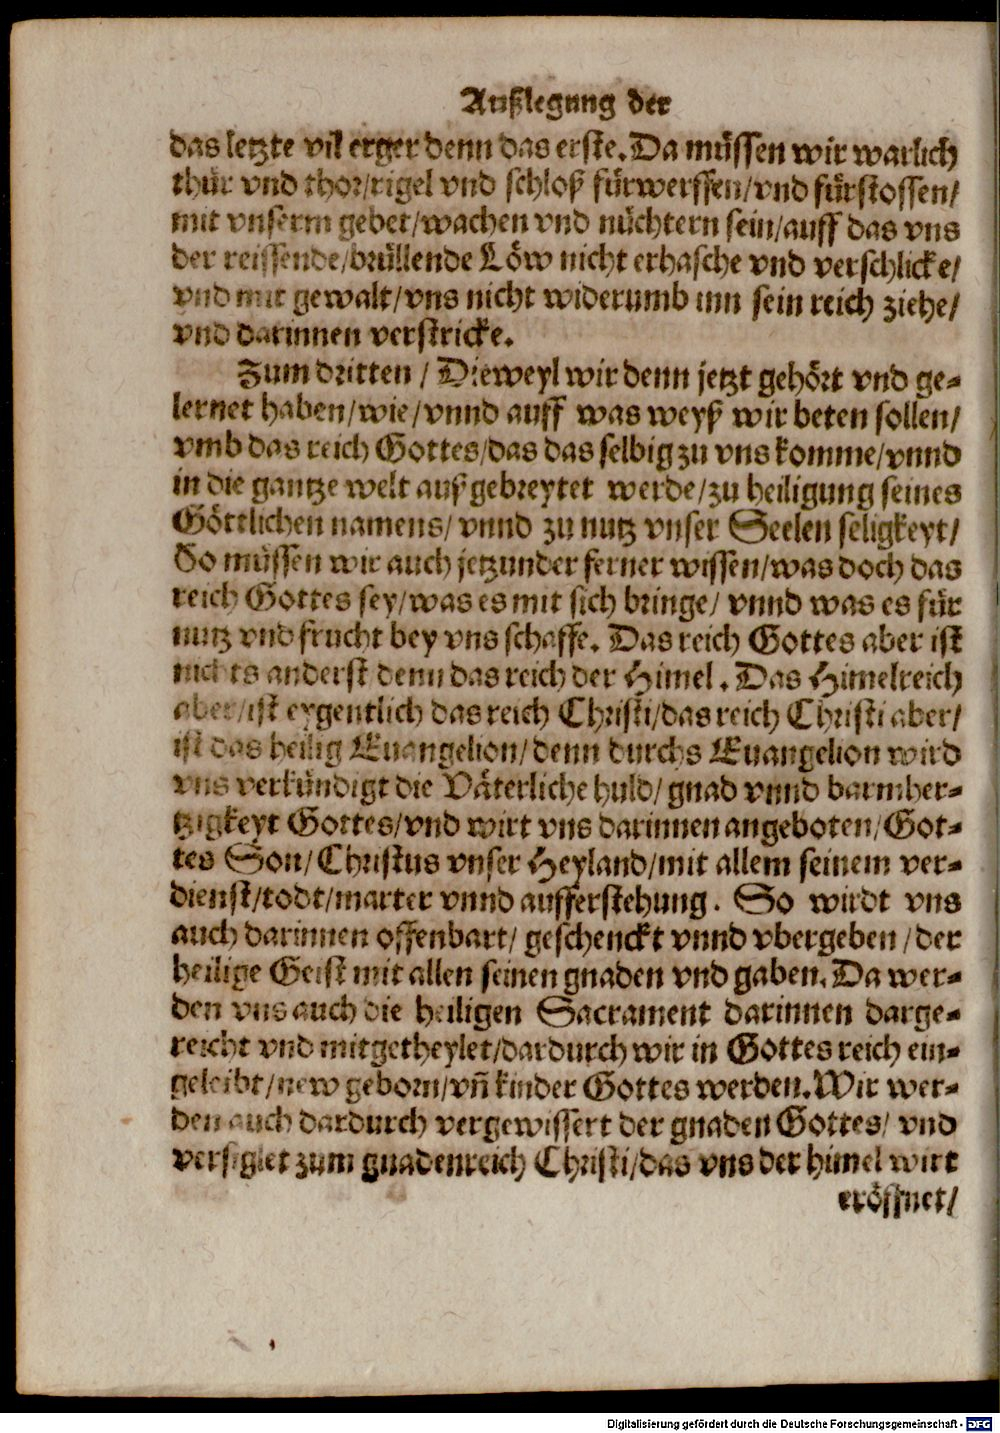 Außlegung der
das letzte vil erger denn das erste. Da müssen wir warlich
thür vnd thor/rigel vnd schloß fürwerffen/vnd fürstossen/
mit vnserm gebet/wachen vnd nüchtern sein/auff das vns
der reissende/brüllende Löw nicht erhasche vnd verschlicke/
vnd mit gewalt/vns nicht widerumb inn sein reich ziehe/
vnd darinnen verstricke.
Zum dritten / Dieweyl wir denn jetzt gehört vnd ge-
lernet haben/wie/vnnd auff was weyß wir beten sollen/
vmb das reich Gottes/das das selbig zu vns komme/vnnd
in die gantze welt außgebreytet werde/zu heiligung seines
Göttlichen namens/ vnnd zu nutz vnser Seelen seligkeyt/
So müssen wir auch jetzunder ferner wissen/was doch das
reich Gottes sey/was es mit sich bringe/ vnnd was es für
nutz vnd frucht bey vns schaffe. Das reich Gottes aber ist
nichts anderst denn das reich der Himel. Das Himelreich
aber/ist eygentlich das reich Christi/das reich Christi aber/
ist das heilig Euangelion/denn durchs Euangelion wird
vns verkündigt die Väterliche huld/ gnad vnnd barmher-
tzigkeyt Gottes/vnd wirt vns darinnen angeboten/Got-
tes Son/Christus vnser Heyland/mit allem seinem ver-
dienst/todt/marter vnnd aufferstehung. So wirdt vns
auch darinnen offenbart/ geschenckt vnnd vbergeben /der
heilige Geist mit allen seinen gnaden vnd gaben. Da wer-
den vns auch die heiligen Sacrament darinnen darge-
reicht vnd mitgetheylet/dardurch wir in Gottes reich ein-
geleibt/new geborn/vñ kinder Gottes werden. Wir wer-
den auch dardurch vergewissert der gnaden Gottes/ vnd
versiglet zum gnadenreich Christi/das vns der himel wirt
eröffnet/
Digitalisierung gefördert durch die Deutsche Forschungsgemeinschaft - DFG